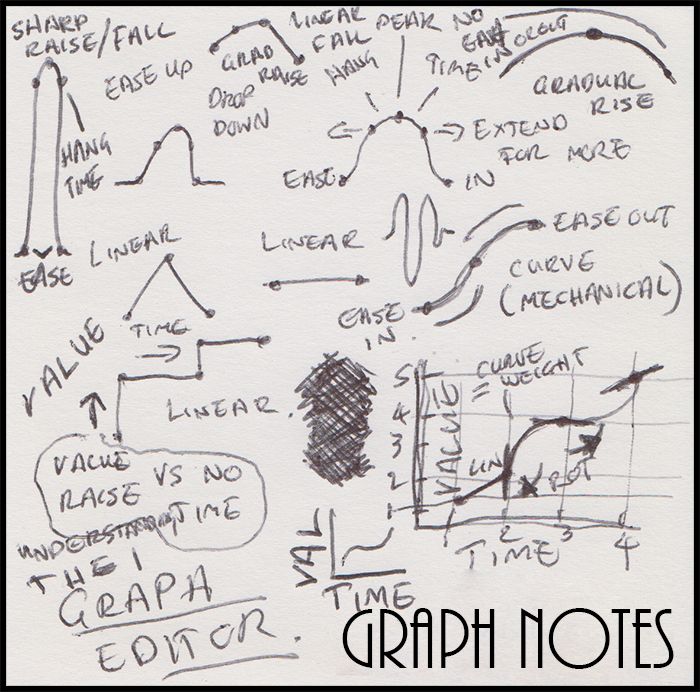 SHARP
RAISE/FALL
EASE UP
GRAD
RAISE
DROP
DOWN
LINEAR
FALL
HANG
PEAK
NO
TIME IN OR OUT
GRADUAL
RISE
HANG
TIME
EASE
EASE
IN
EXTEND
FOR MORE
LINEAR
LINEAR
EASE OUT
CURVE
(MECHANICAL)
EASE
IN
VALUE
TIME
LINEAR.
VALUE VS NO
RAISE TIME
UNDERSTANDING
THE
GRAPH
EDITOR.
VAL
TIME
CURVE
= WEIGHT
VALUE
5
4
3
2
1
LIN
ROT
1 2 3 4
TIME
GRAPH NOTES